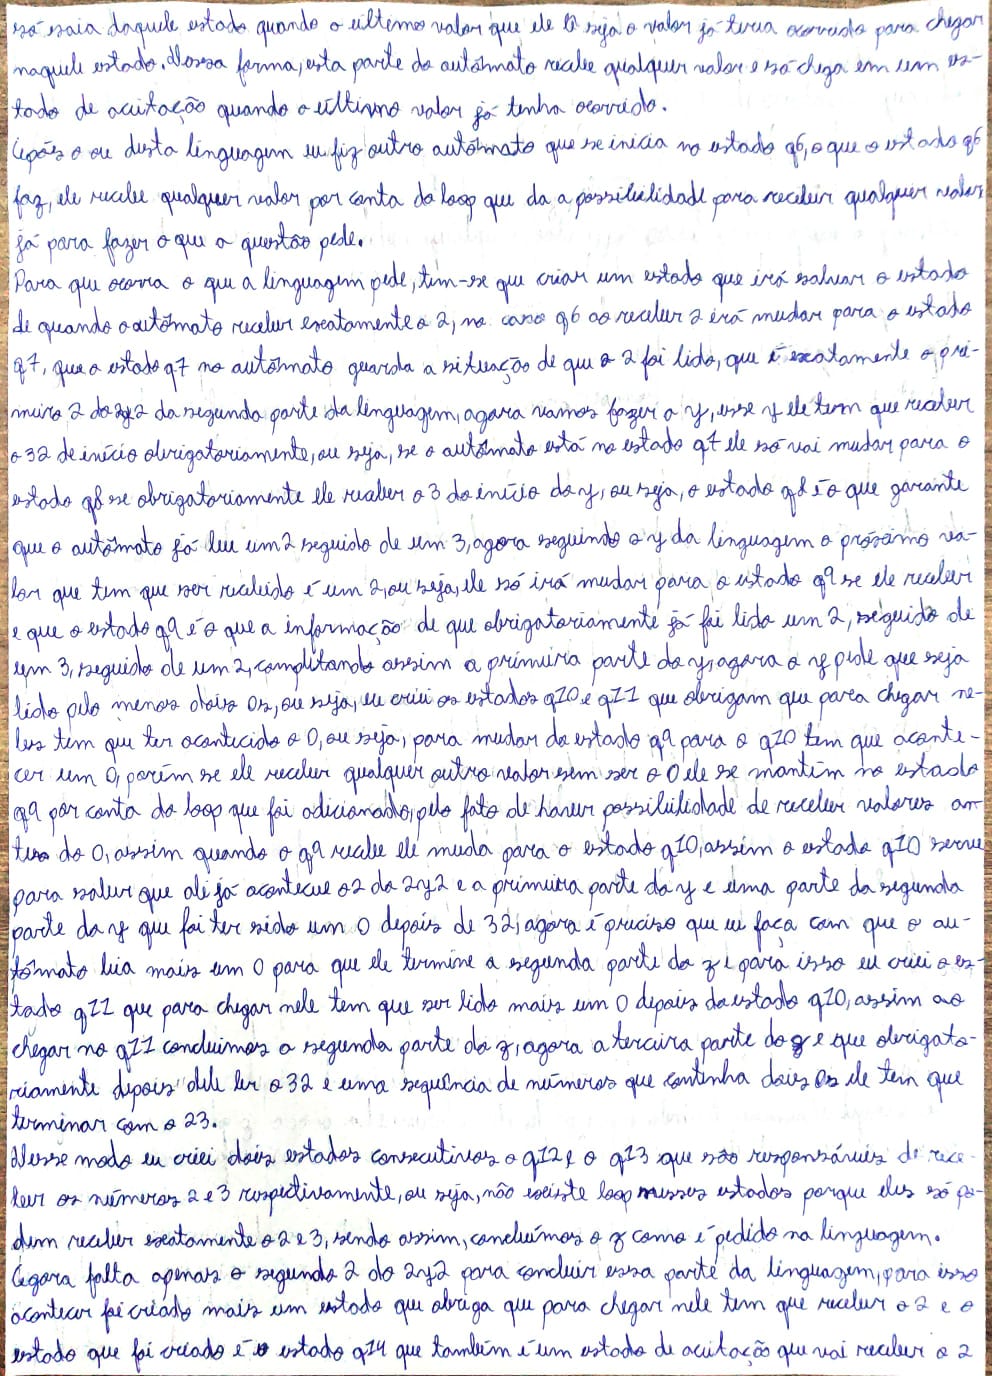 só saia daquele estado quando o último valor que ele lê seja o valor já teria ocorrido para chegar
naquele estado. Dessa forma, esta parte do autômato recebe qualquer valor e só chega em um es-
tado de aceitação quando o último valor já tenha ocorrido.
Após o ou desta linguagem eu fiz outro autômato que se inicia no estado q6, o que o estado q6
faz, ele recebe qualquer valor por conta do loop que da a possibilidade para receber qualquer valor
já para fazer o que a questão pede.
Para que ocorra o que a linguagem pede, tem-se que criar um estado que irá salvar o estado
de quando o autômato receber exatamente o 2, no caso q6 ao receber 2 irá mudar para o estado
q7, que o estado q7 no autômato guarda a situação de que o 2 foi lido, que é exatamente o pri-
meiro 2 do 2y2 da segunda parte da linguagem, agora vamos fazer a y, esse y ele tem que receber
o 32 de início obrigatoriamente, ou seja, se o autômato está no estado q7 ele só vai mudar para o
estado q8 se obrigatoriamente ele receber o 3 do início do y, ou seja, o estado q8 é o que garante
que o autômato já leu um 2 seguido de um 3, agora seguindo o y da linguagem o próximo va-
lor que tem que ser recebido é um 2, ou seja, ele só irá mudar para o estado q9 se ele receber
e que o estado q9 é o que a informação de que obrigatoriamente já foi lido um 2, seguido de
um 3, seguido de um 2, completando assim a primeira parte do y, agora o y pede que seja
lido pelo menos dois 0s, ou seja, eu criei os estados q10 e q11 que obrigam que para chegar ne-
les tem que ter acontecido o 0, ou seja, para mudar do estado q9 para o q10 tem que aconte-
cer um 0, porém se ele receber qualquer outro valor sem ser o 0 ele se mantém no estado
q9 por conta do loop que foi adicionado, pelo fato de haver possibilidade de receber valores an-
tes do 0, assim quando o q9 recebe ele muda para o estado q10, assim o estado q10 serve
para saber que ali já aconteceu o 2 do 2y2 e a primeira parte do y e uma parte da segunda
parte do y que foi ter sido um 0 depois de 32, agora é preciso que eu faça com que o au-
tômato leia mais um 0 para que ele termine a segunda parte do y e para isso eu criei o es-
tado q11 que para chegar nele tem que ser lido mais um 0 depois do estado q10, assim ao
chegar no q11 concluimos a segunda parte do y, agora a terceira parte do y é que obrigato-
riamente depois dele ler o 32 e uma sequência de números que contenha dois 0s ele tem que
terminar com o 23.
Desse modo eu criei dois estados consecutivos o q12 e o q13 que são responsáveis de rece-
ber os números 2 e 3 respectivamente, ou seja, não existe loop nesses estados porque eles só po-
dem receber exatamente o 2 e 3, sendo assim, concluímos o y como é pedido na linguagem.
Agora falta apenas o segundo 2 do 2y2 para concluir essa parte da linguagem, para isso
acontecer foi criado mais um estado que obriga que para chegar nele tem que receber o 2 e o
estado que foi criado é o estado q14 que também é um estado de aceitação que vai receber o 2